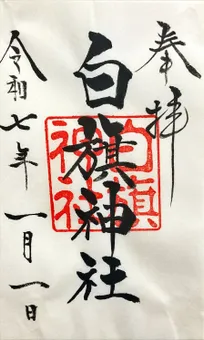 奉拝
白旗神社
白旗神社
令和七年 一月一日